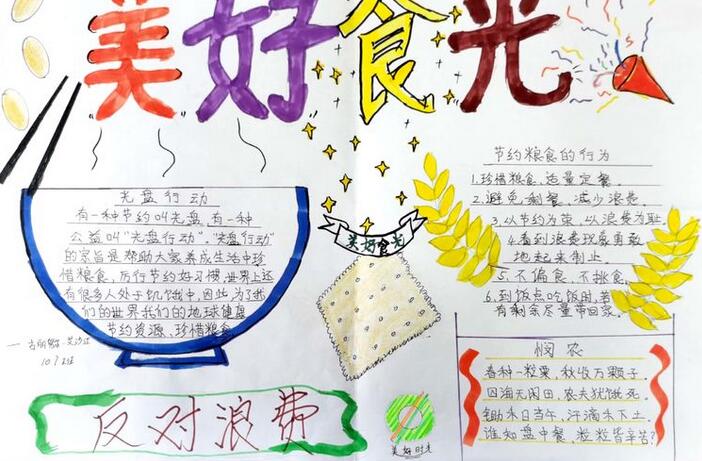 美好食光
光盘行动
有一种节约叫光盘,有一种
公益叫"光盘行动"."光盘行动"
的宗旨是帮助大家养成生活中珍
惜粮食,厉行节约好习惯,世界上还
有很多人处于饥饿中,因此,为了我
们的世界我们的地球健康
节约资源、珍惜粮食
美好食光
节约粮食的行为
1.珍惜粮食、适量定餐。
2.避免剩餐、减少浪费。
3.以节约为荣,以浪费为耻
4.看到浪费现象勇敢
地起来制止。
5.不偏食、不挑食。
6.到饭点吃饭时,若
有剩余尽量带回家。
悯农
春种一粒粟,秋收万颗子
四海无闲田,农夫犹饿死。
锄禾日当午,汗滴禾下土。
谁知盘中餐,粒粒皆辛苦?
反对浪费
美好时光